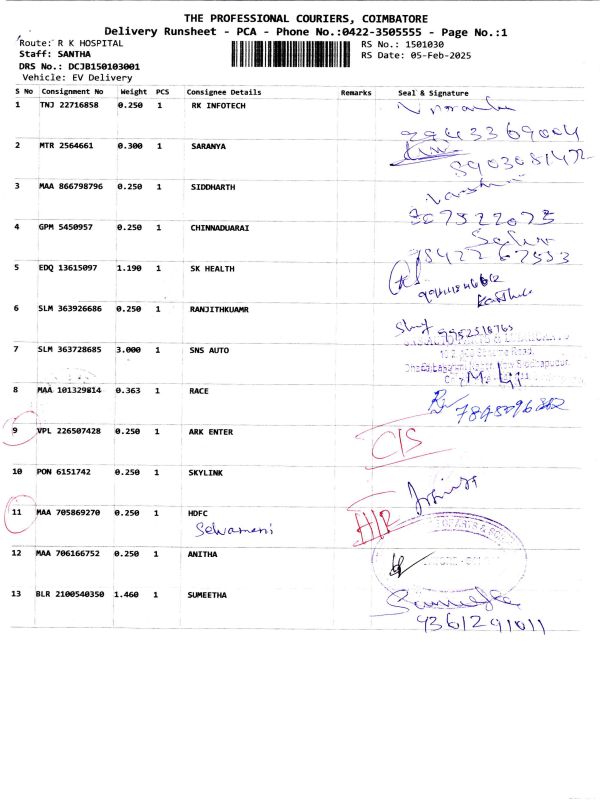 THE PROFESSIONAL COURIERS, COIMBATORE
Delivery Runsheet - PCA - Phone No.:0422-3505555 - Page No.:1
Route: R K HOSPITAL
RS No.: 1501030
Staff: SANTHA
RS Date: 05-Feb-2025
DRS No.: DCJB150103001
Vehicle: EV Delivery
S No Consignment No Weight PCS Consignee Details Remarks Seal & Signature
1 TNJ 22716858 0.250 1 RK INFOTECH
9943369004
2 MTR 2564661 0.300 1 SARANYA
3 MAA 866798796 0.250 1 SIDDHARTH
4 GPM 5450957 0.250 1 CHINNADUARAI
5 EDQ 13615097 1.190 1 SK HEALTH
6 SLM 363926686 0.250 1 RANJITHKUAMR
7 SLM 363728685 3.000 1 SNS AUTO
8 MAA 101329814 0.363 1 RACE
9 VPL 226507428 0.250 1 ARK ENTER
C/S
10 PON 6151742 0.250 1 SKYLINK
11 MAA 705869270 0.250 1 HDFC
Selvamani
12 MAA 706166752 0.250 1 ANITHA
13 BLR 2100540350 1.460 1 SUMEETHA
9361291011